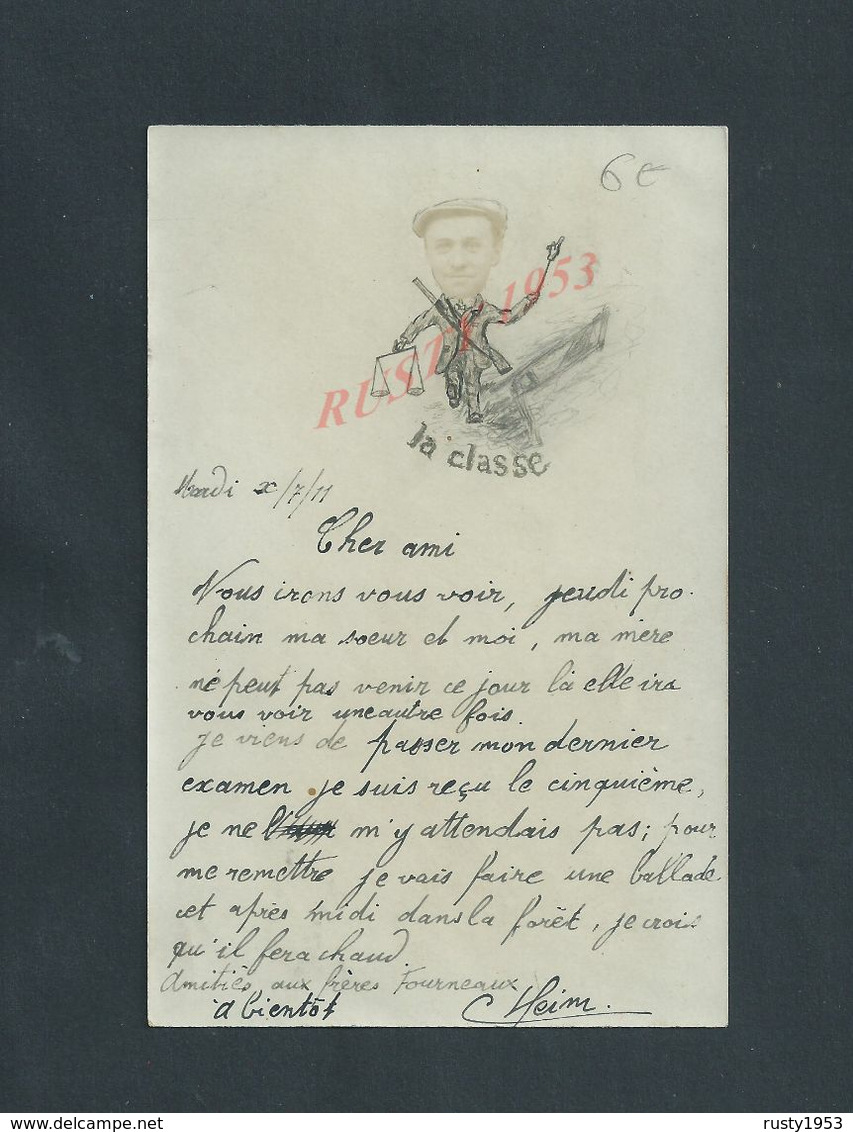 6€
RUSTY 1953
la classe
Mardi x/7/11
Cher ami
Nous irons vous voir, jeudi pro-
chain ma soeur et moi, ma mère
né peut pas venir ce jour là elle ira
vous voir uneautre fois.
je viens de passer mon dernier
examen je suis reçu le cinquième,
je ne m'y attendais pas; pour
me remettre je vais faire une ballade
cet après midi dans la forêt, je crois
qu'il fera chaud
Amitiés aux frères Fourneaux
à bientôt
CHeim.
www.delcampe.net
rusty1953